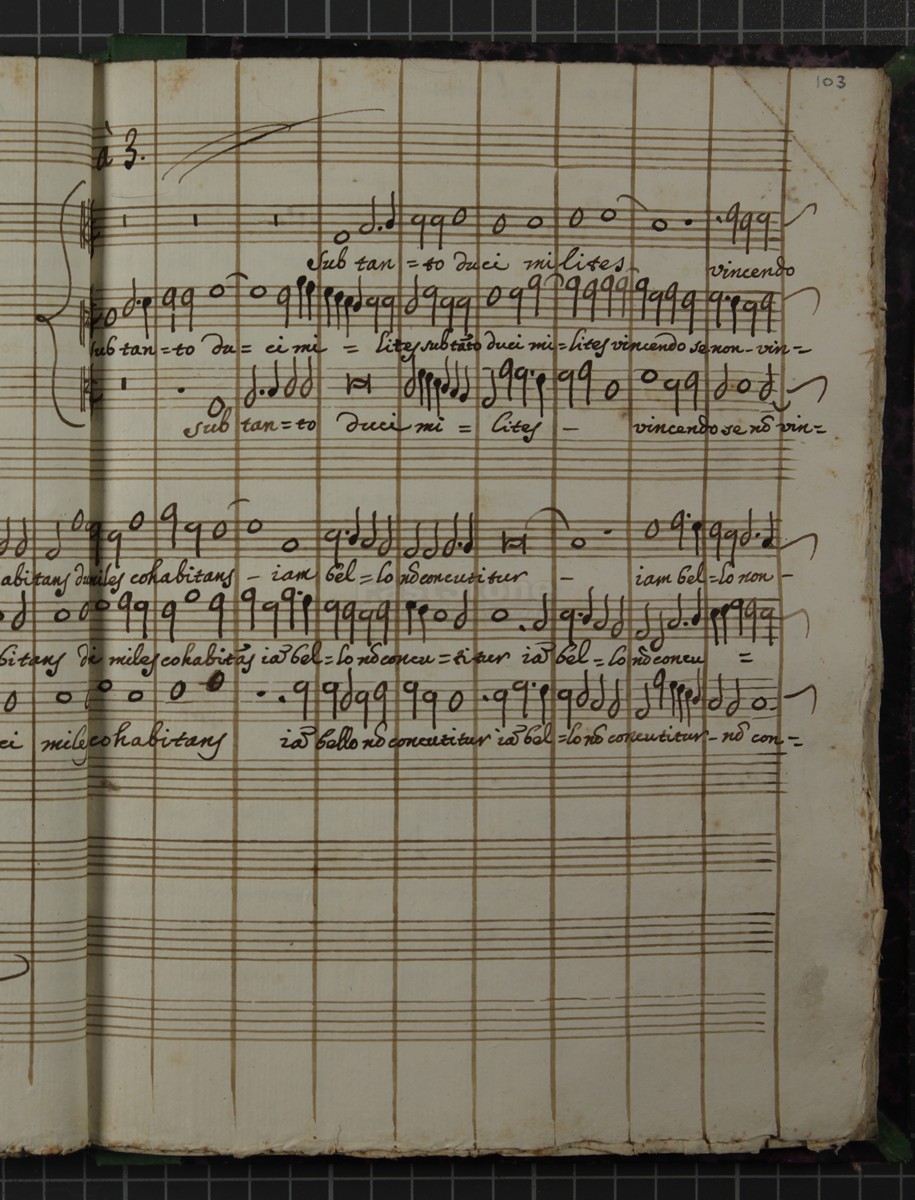 103
à 3.
Sub tan = to duci milites
vincendo
sub tan = to du = ci mi = lites sub tãto duci mi = lites vincendo se non - vin =
sub tan = to duci mi = lites - vincendo se nõ vin =
abitans cohabitans - iam bel = lo nõ concutitur - iam bel = lo non -
bitans miles cohabitãs iã bel = lo nõ concu = titur iã bel = lo nõ concu =
ci miles cohabitans iã bello nõ concutitur iã bel = lo nõ concutitur - nõ con =